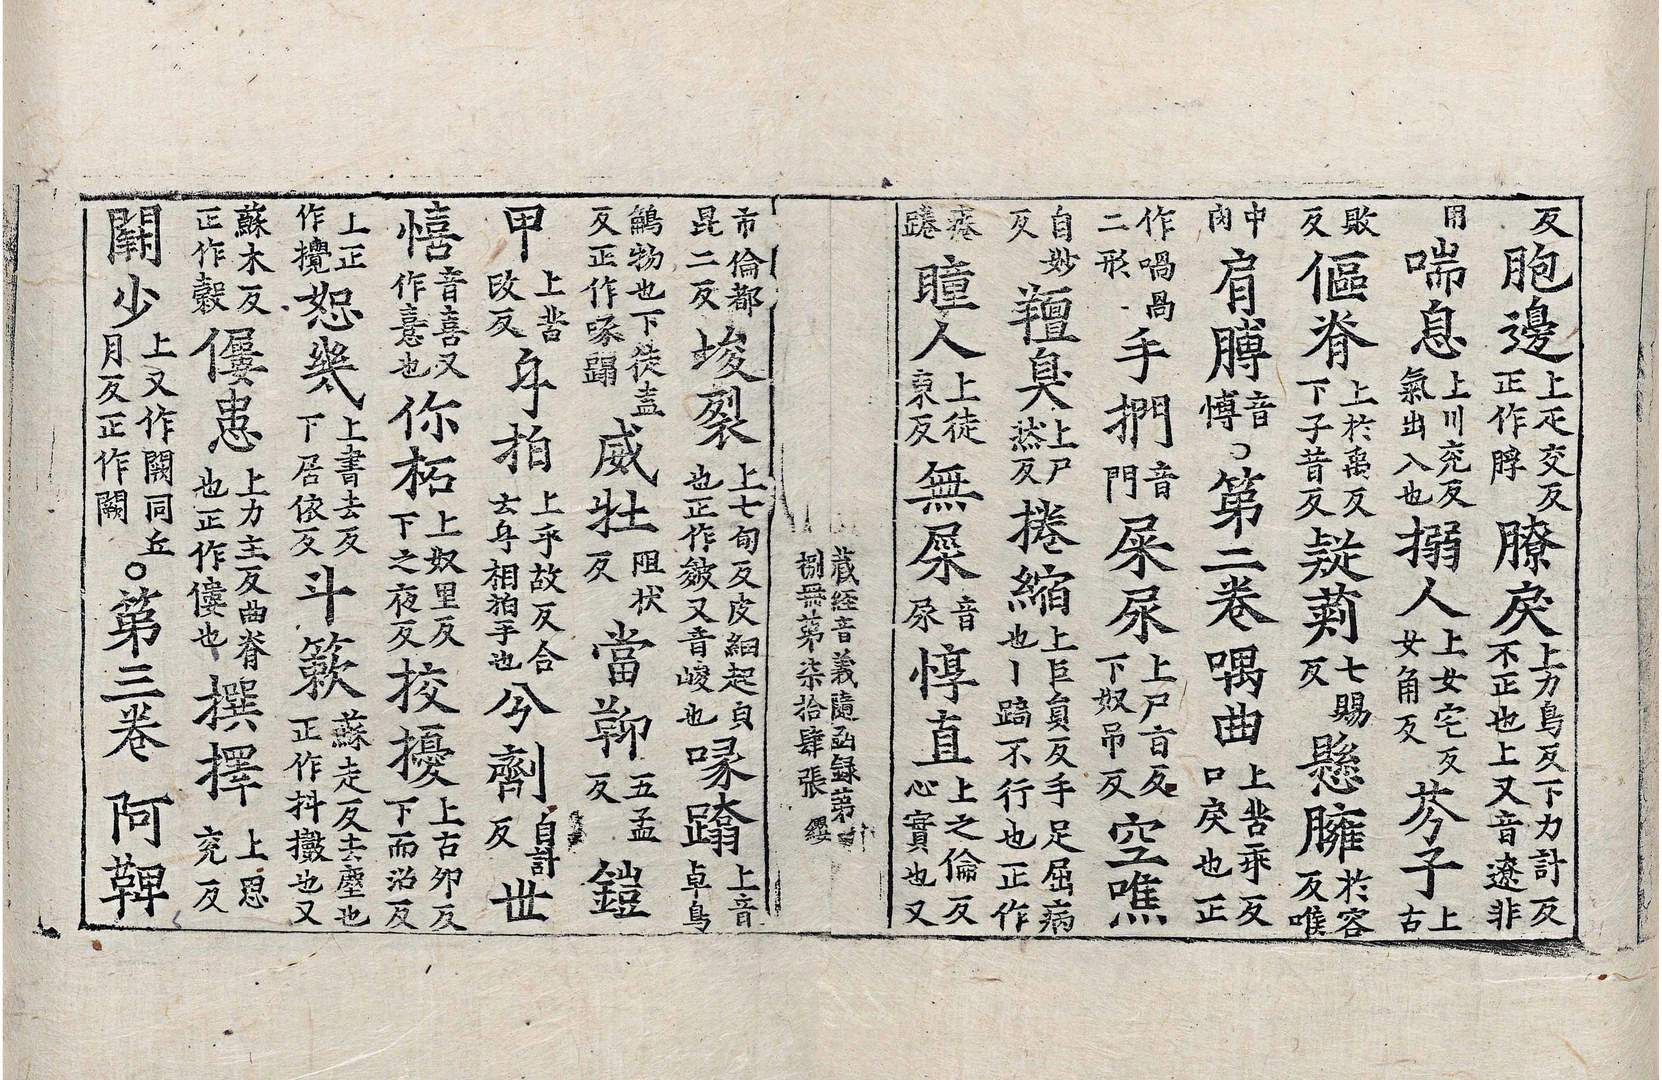 反胞邊上疋交反正作脬膫戾上力鳥反下力計反不正也上又音遼非
用喘息上川兖反氣出入也搦人上女宅反女角反芥子上古
敗反傴脊上於禹反下子昔反疑莿七賜反懸臃於容反唯
中肉肩膊音博〇第二卷喎曲上苦乖反口戾也正
作喎咼二形手捫音門屎尿上尸旨反下奴吊反空噍
自妙反羶臭上尸蒸反捲縮上巨負反手足屈病也丨蹐不行也正作
痿踡瞳人上徒東反無屎音尿惇直上之倫反心實也又
藏經音義隨函録第 捌冊第柒拾肆張 纓
市倫都昆二反皴裂上七旬反皮細起皃也正作皴又音峻也啄蹹上音卓鳥
鵮物也下徒盍反正作啄蹋威壯阻状反當鞕五孟反鎧
甲上苦改反身拍上乎故反合去身相拍手也兮劑自計反世
憘音喜又作憙也你柘上奴里反下之夜反挍擾上古夘反下而沼反
上正作攪恕幾上書去反下居依反斗簌蘇走反去塵也正作抖擻也又
蘇木反正作縠僂患上力主反曲脊也正作僂也撰擇上思兖反
闕少上又作闕同丘月反正作闕〇第三卷 阿鞞